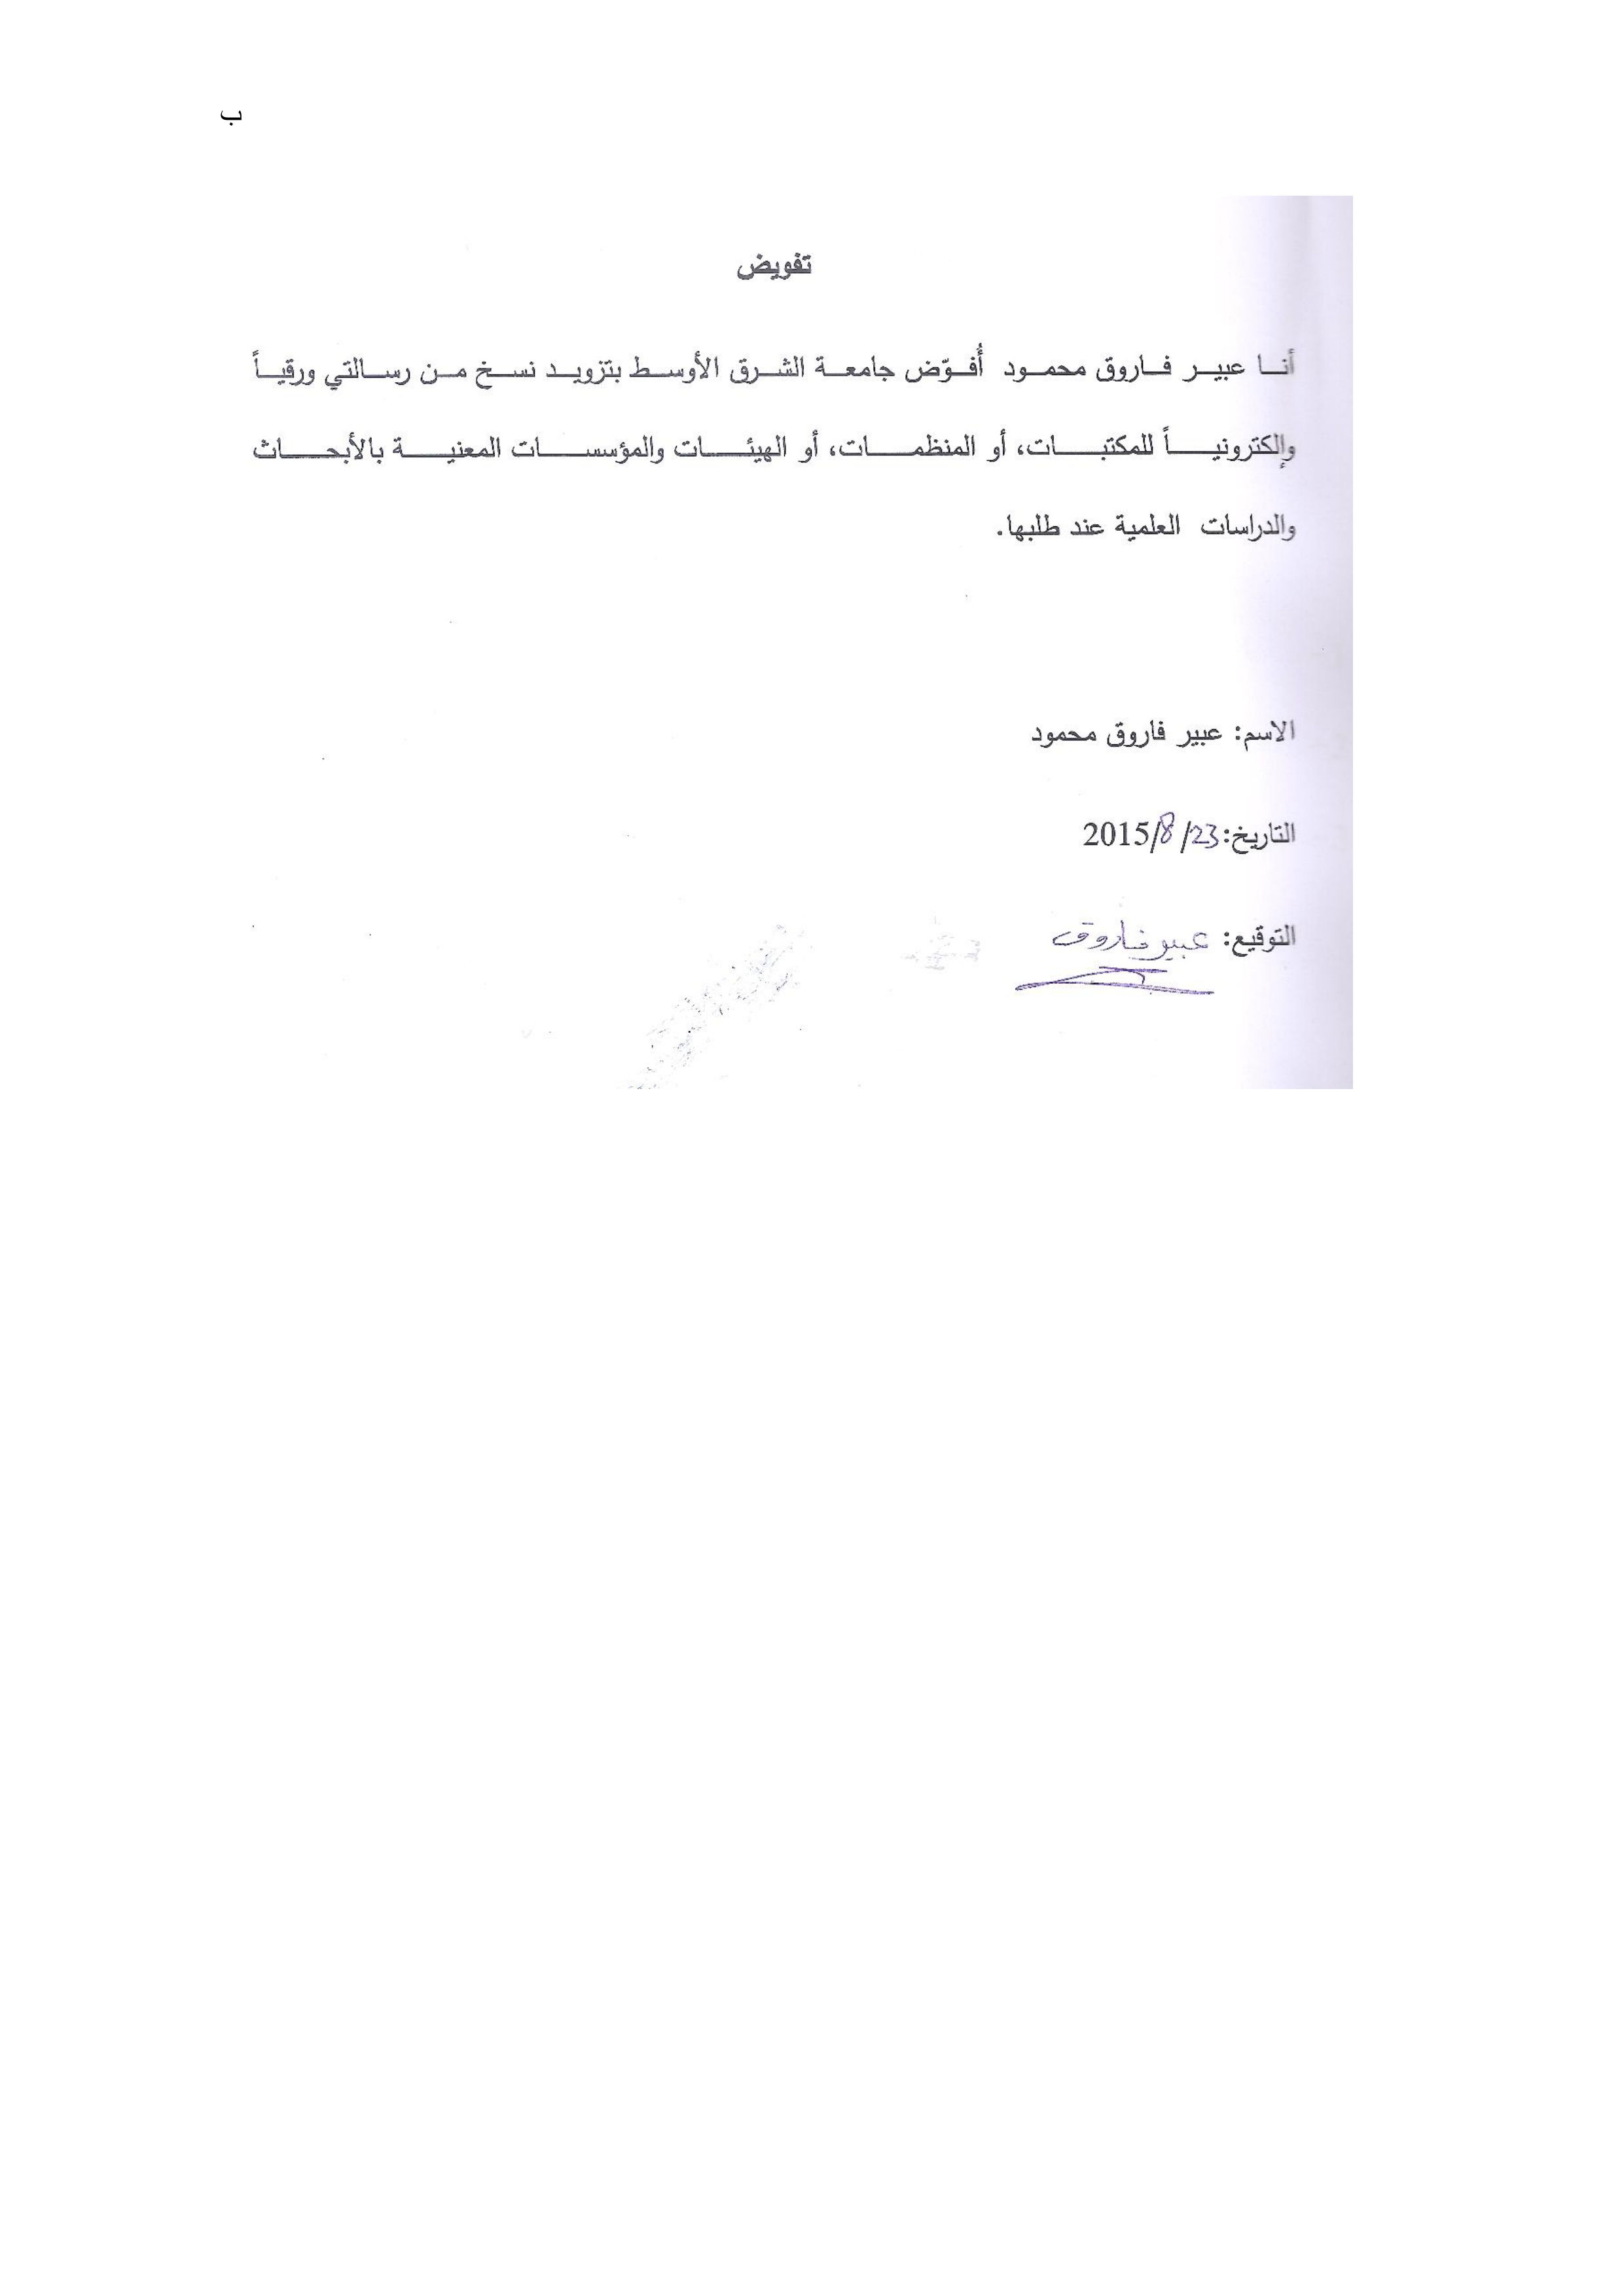 ب
تفويض
أنا عبير فاروق محمود أُفوّض جامعة الشرق الأوسط بتزويد نسخ من رسالتي ورقياً
وإلكترونياً للمكتبات، أو المنظمات، أو الهيئات والمؤسسات المعنية بالأبحاث
والدراسات العلمية عند طلبها.
الاسم: عبير فاروق محمود
التاريخ: 23/ 8/2015
التوقيع: عبير فاروق